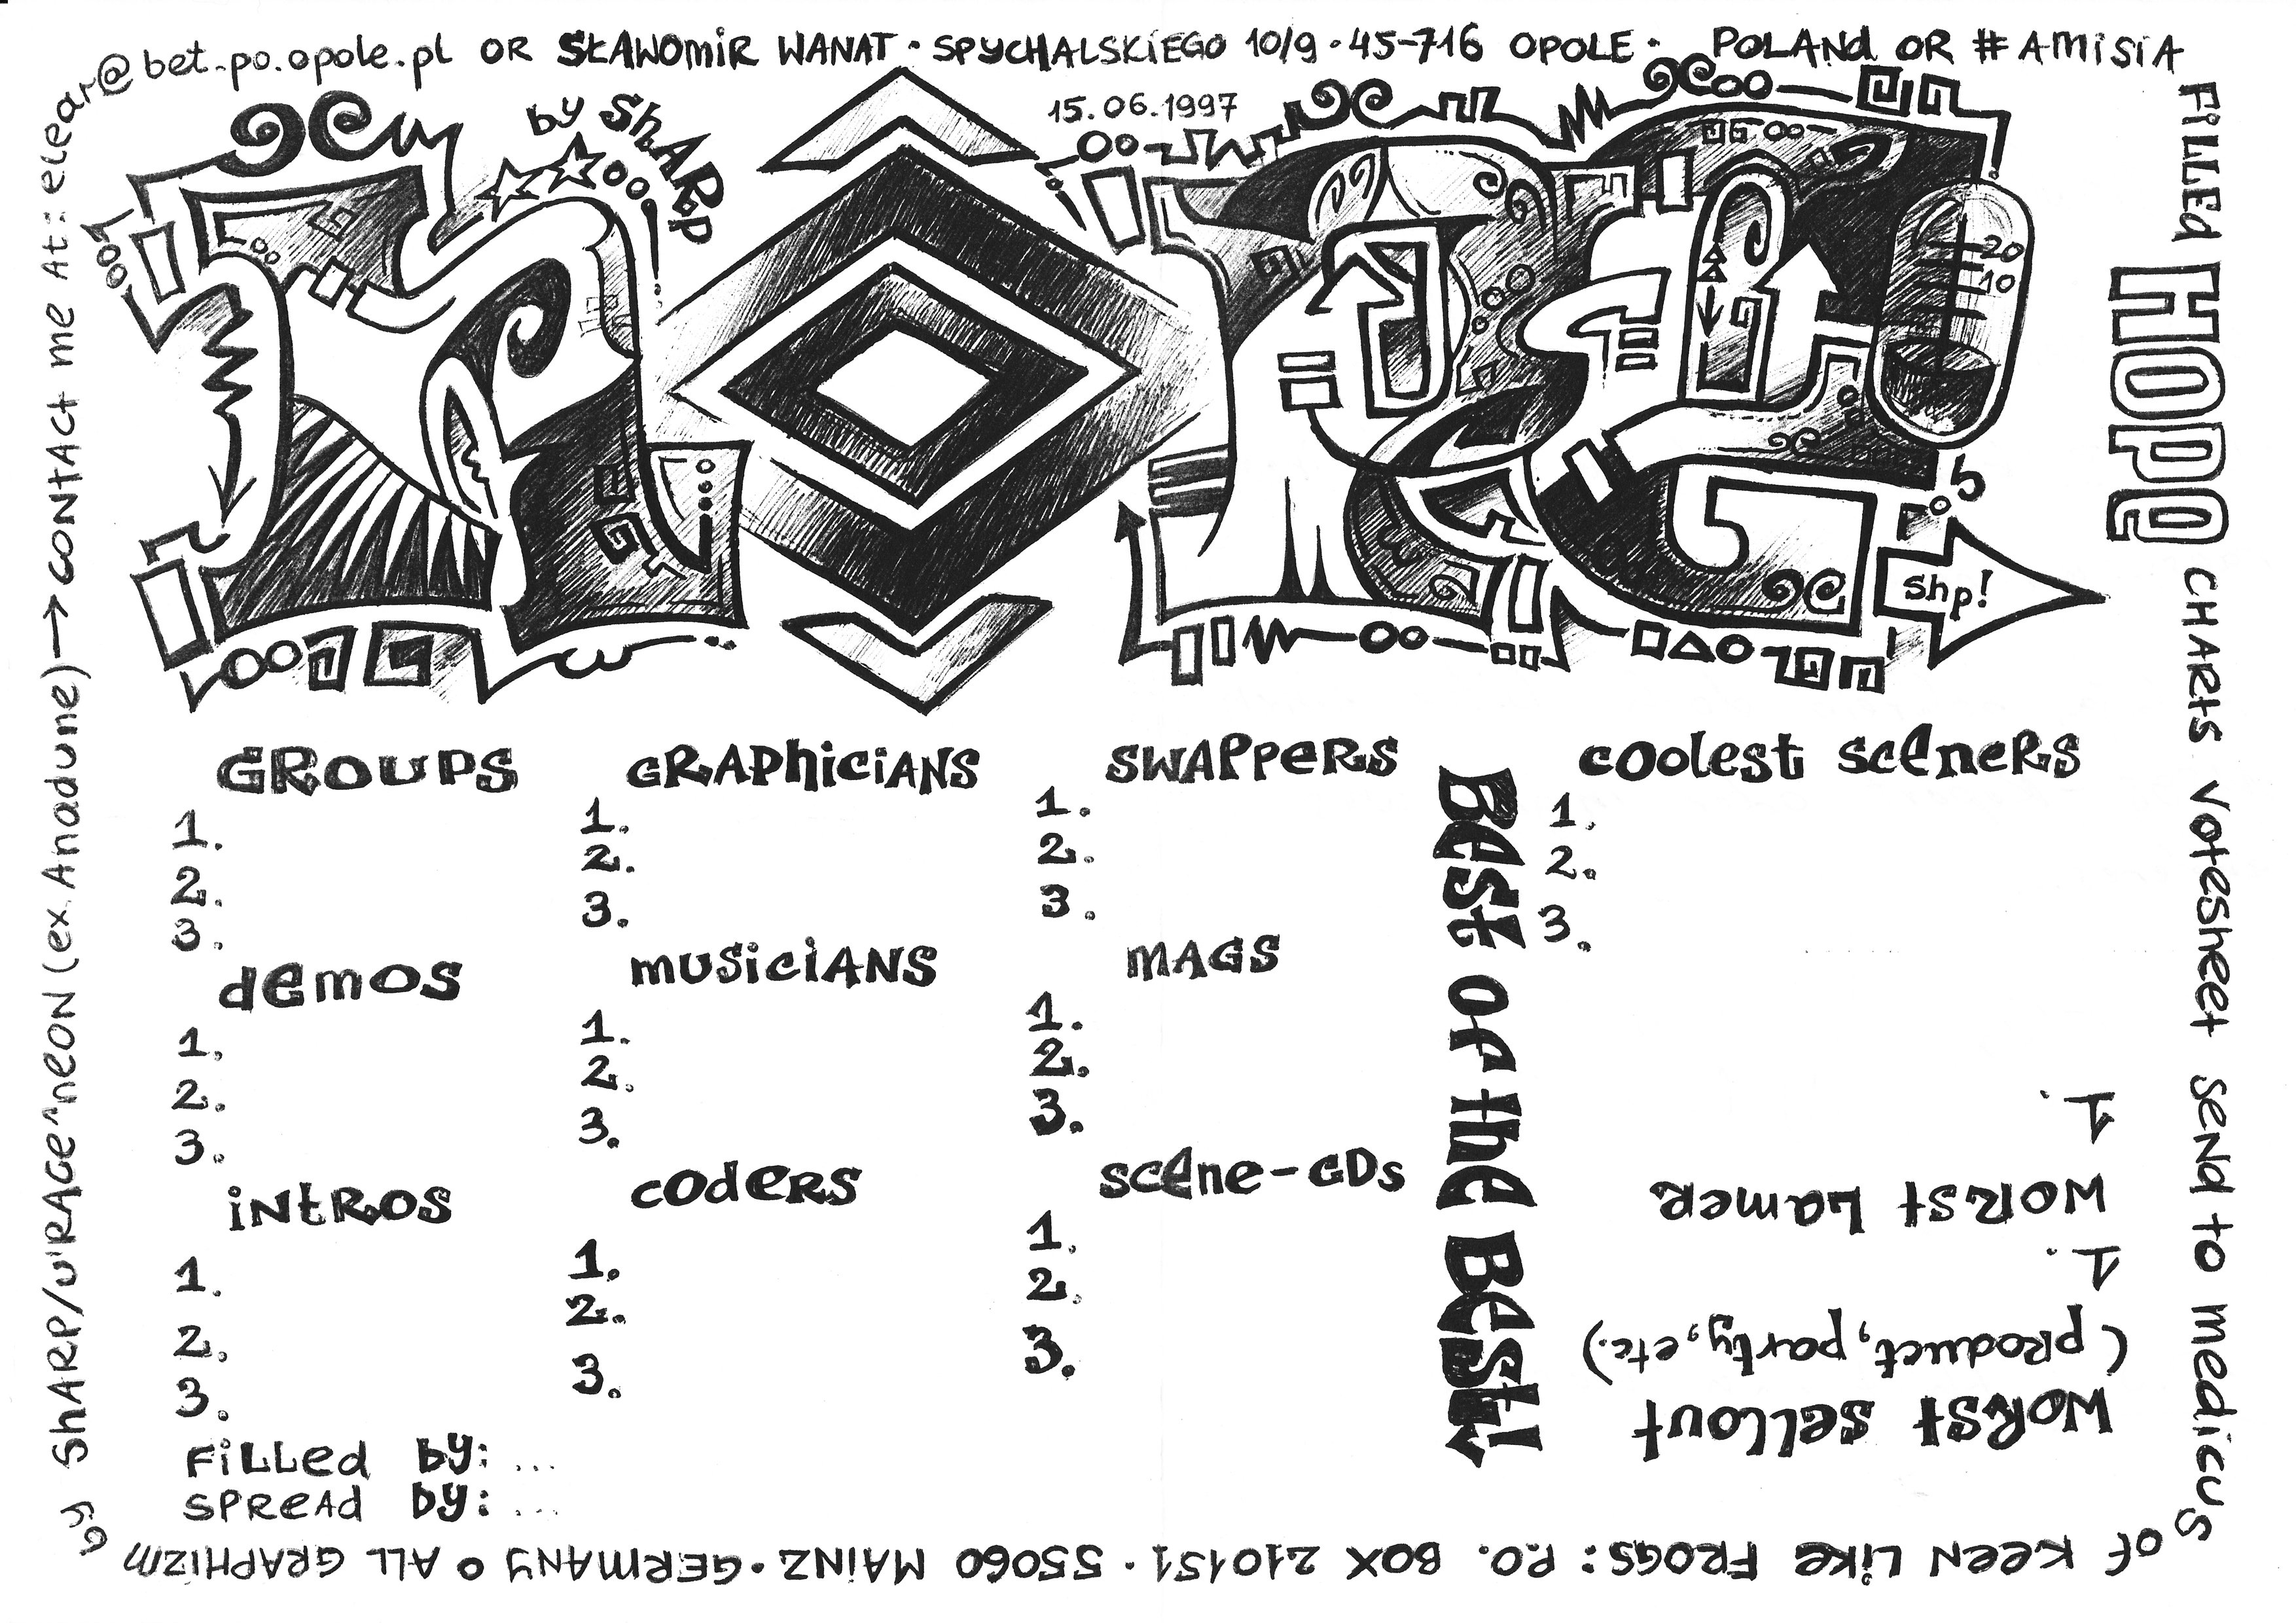 @bet.po.opole.pl OR SŁAWOMIR WANAT · SPYCHALSKIEGO 10/9 · 45-716 OPOLE · POLAND OR # AMISIA
FILLED HOPE CHARTS VOTESHEET SEND TO MEDICUS
OF KEEN LIKE FROGS: P.O. BOX 210151 · 55060 MAINZ · GERMANY o ALL GRAPHIZM
by SHARP/U'RAGE^NEON (ex. Anadune) → CONTACT ME AT: elear
by SHARP
15.06.1997
HOPE
20
10
Shp!
GROUPS
1.
2.
3.
DEMOS
1.
2.
3.
INTROS
1.
2.
3.
GRAPHICIANS
1.
2.
3.
MUSICIANS
1.
2.
3.
CODERS
1.
2.
3.
SWAPPERS
1.
2.
3.
MAGS
1.
2.
3.
SCENE-CDs
1.
2.
3.
BEST OF THE BEST!
COOLEST SCENERS
1.
2.
3.
WORST SELLOUT
(PRODUCT, PARTY, ETC.)
1.
WORST LAMER
1.
FILLED by: ...
SPREAD by: ...